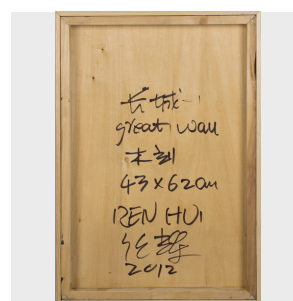 长城
great wall
木刻
43×62cm
REN HUI
任
2012